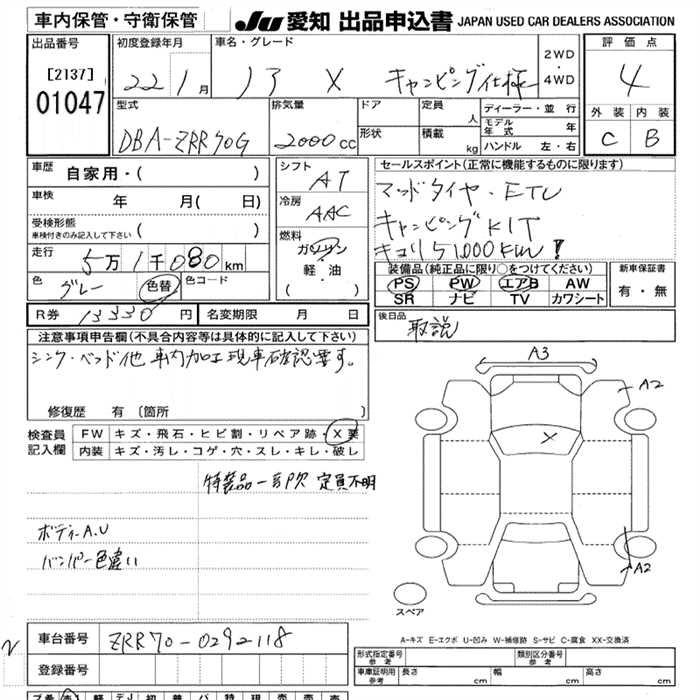 車内保管・守衛保管
JU 愛知 出品申込書 JAPAN USED CAR DEALERS ASSOCIATION
出品番号
[2137]
01047
初度登録年月
22 1月
車名・グレード
X キャンピング仕様
2WD
・
4WD
評価点
4
外装 内装
C B
型式
DBA-ZRR70G
排気量
2000cc
ドア
形状
定員
人
積載
kg
ディーラー・並行
モデル年式 年
ハンドル 左・右
車歴
自家用・( )
車検 年 月( 日)
受検形態
車検付きのみ記入して下さい ( )
走行
5万1千080km
色
グレー 色替
色コード
シフト
AT
冷房
AAC
燃料
ガソリン
・
軽・油
( )
セールスポイント(正常に機能するものに限ります)
マッドタイヤ・ETC
キャンピングKIT
キョリ51,000km!
装備品(純正品に限り○をつけてください)
PS PW エアB AW
SR ナビ TV カワシート
新車保証書
有・無
R券 13330円 名変期限 月 日
後日品
取説
注意事項申告欄(不具合内容等は具体的に記入して下さい)
シンク・ベッド他 車内加工現車確認要す。
修復歴 有〔箇所
検査員
記入欄
FW キズ・飛石・ヒビ割・リペア跡・X要
内装 キズ・汚レ・コゲ・穴・スレ・キレ・破レ
特装品一部欠 定員不明
ボディーA.U
バンパー色違い
A3
A2
X
A2
スペア
A-キズ E-エクボ U-凹み W-補修跡 S-サビ C-腐食 XX-交換済
車台番号 ZRR70-0292118
登録番号
形式指定番号
参考
類別区分番号
参考
車庫証明用
参考
長さ cm 幅 cm 高さ cm